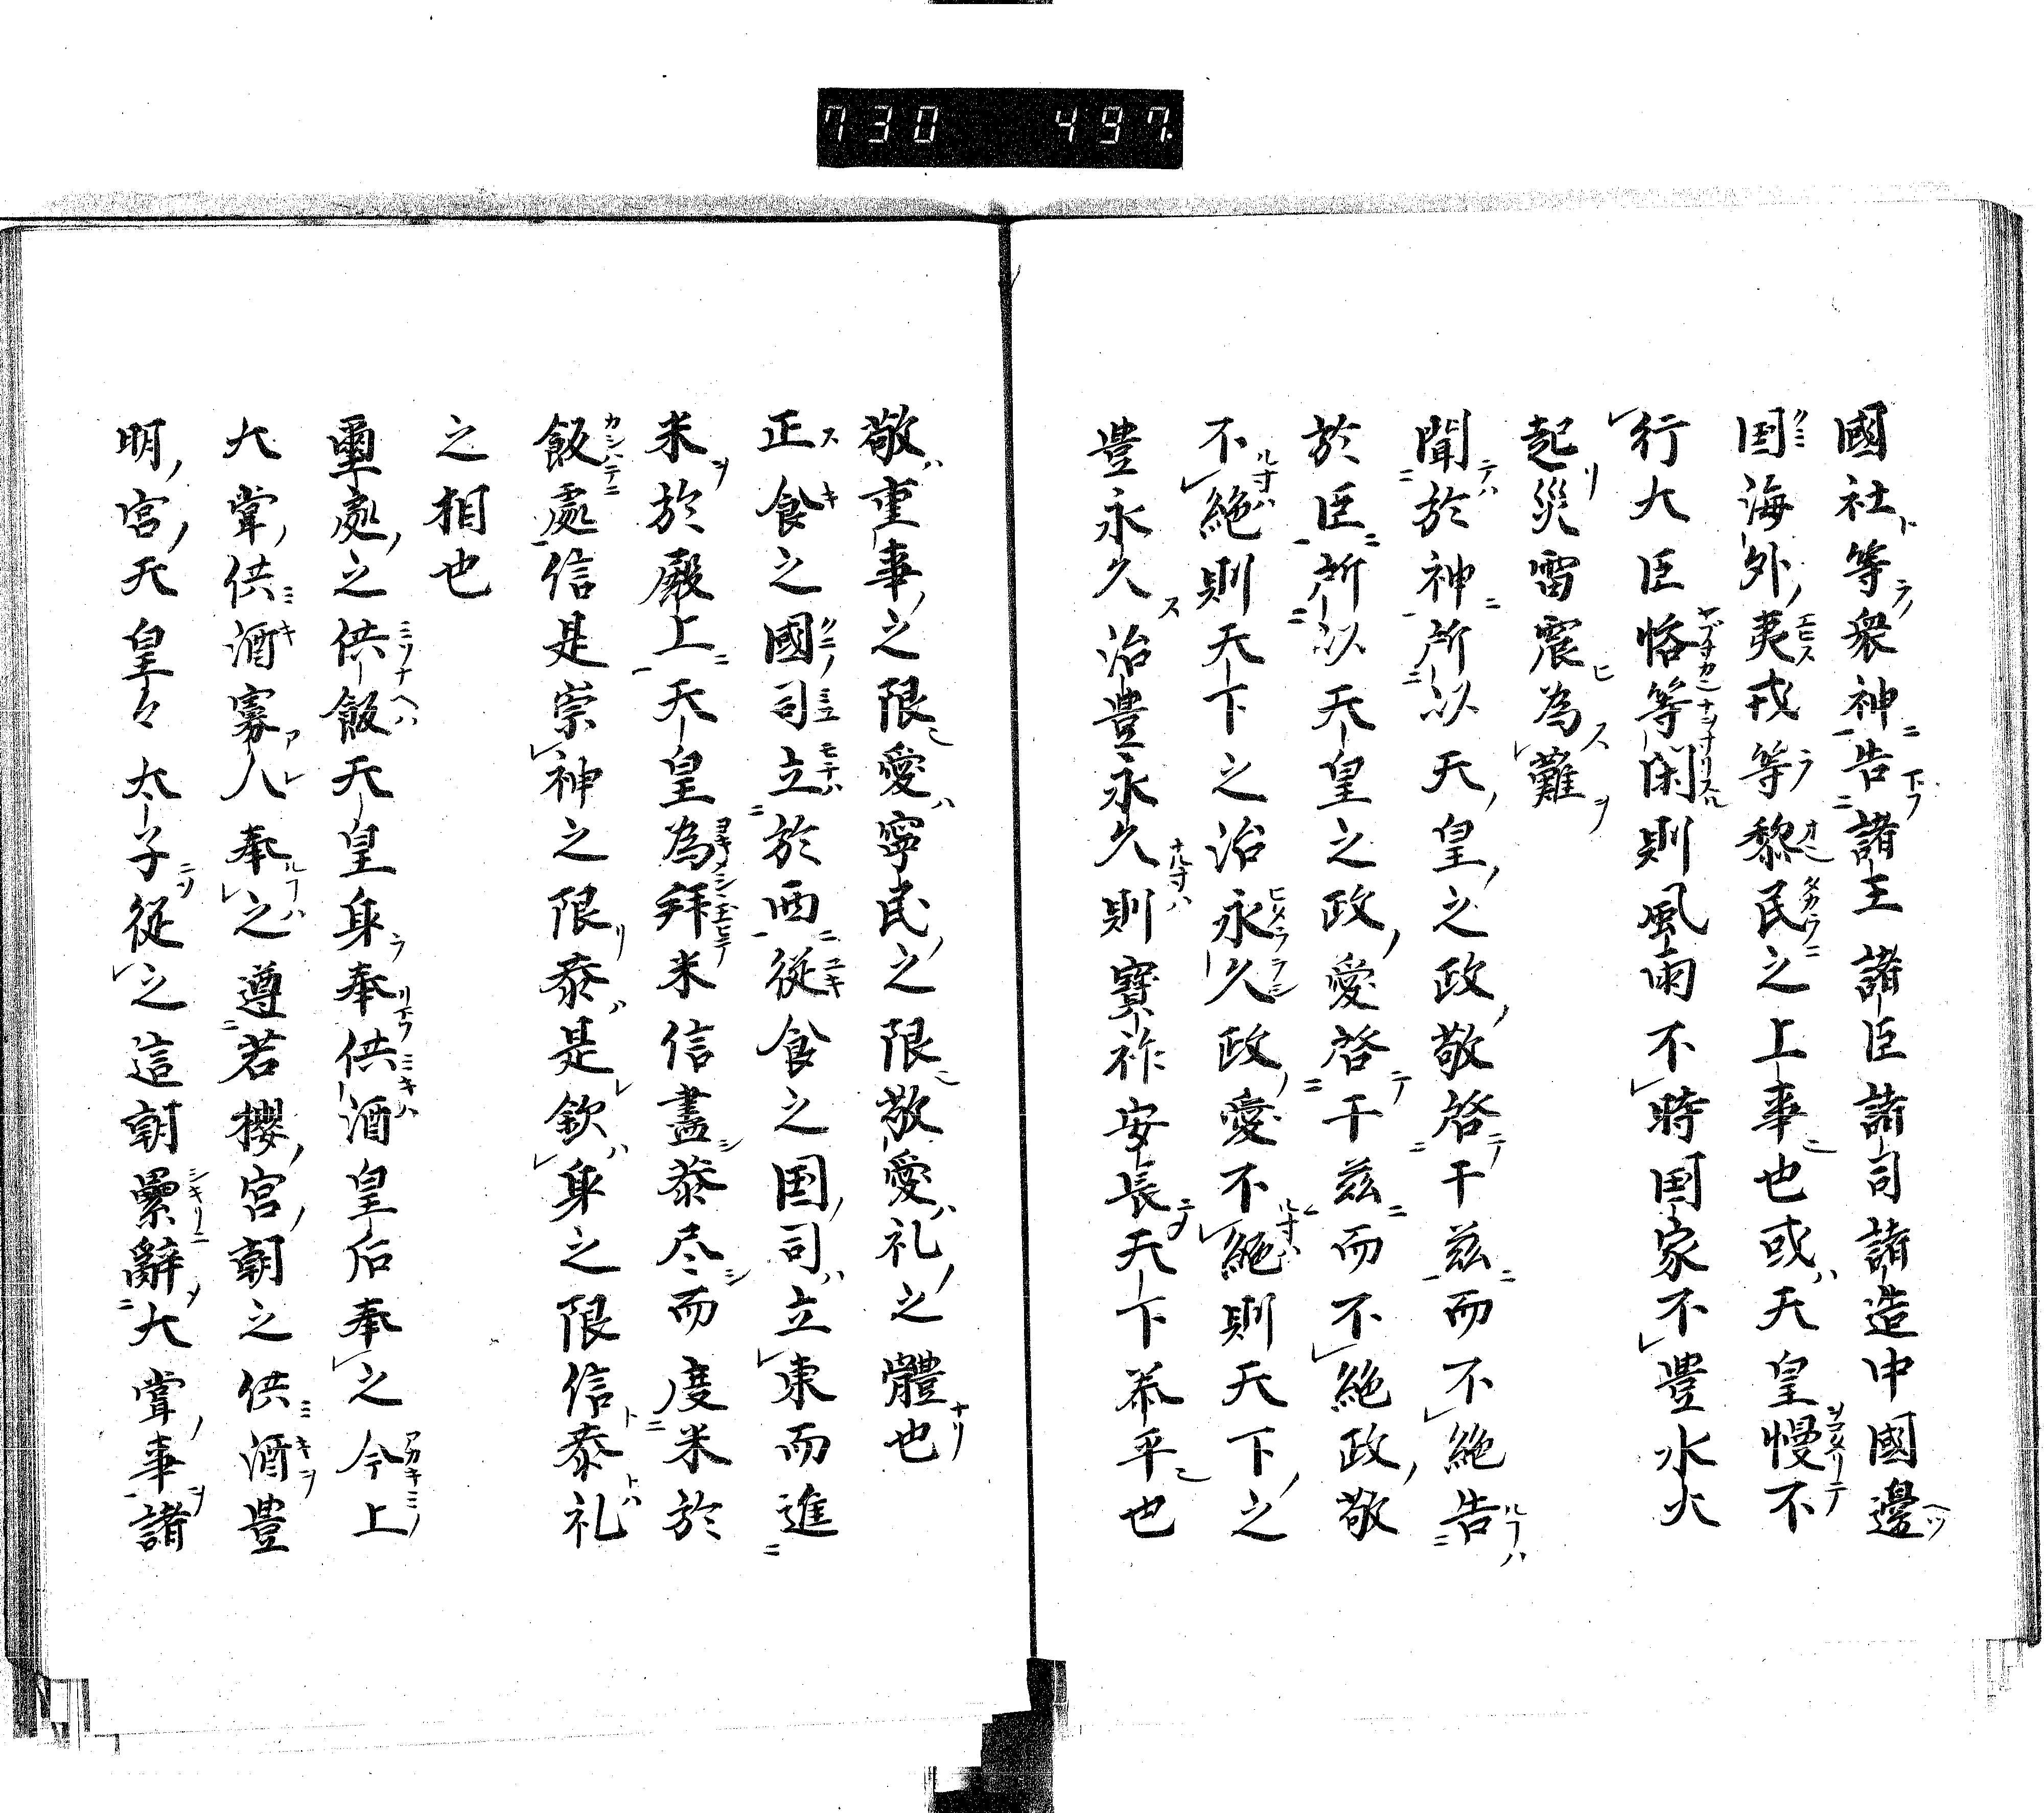 730 497.
國社等衆神告諸王諸臣諸司諸造中國邊
国海外夷戎等黎民之上事也或天皇慢不
行大臣恪等閑則風雨不時国家不豊水火
起災雷震為難
聞於神所以天皇之政敬啓干茲而不絶告
於臣所以天皇之政愛啓干茲而不絶政敬
不絶則天下之治永久政愛不絶則天下之
豊永久治豊永久則寶祚安長天下恭平也
敬重事之限愛寧民之限敬愛礼之體也
正食之國司立於西従食之国司立東而進
米於殿上天皇為拜米信盡恭尽而度米於
飯處信是崇神之限恭是欽身之限信恭礼
之相也
重處之供飯天皇身奉供酒皇后奉之今上
大甞供酒寡人奉之遵若櫻宮朝之供酒豊
明宮天皇々太子従之這朝累辭大甞事諸